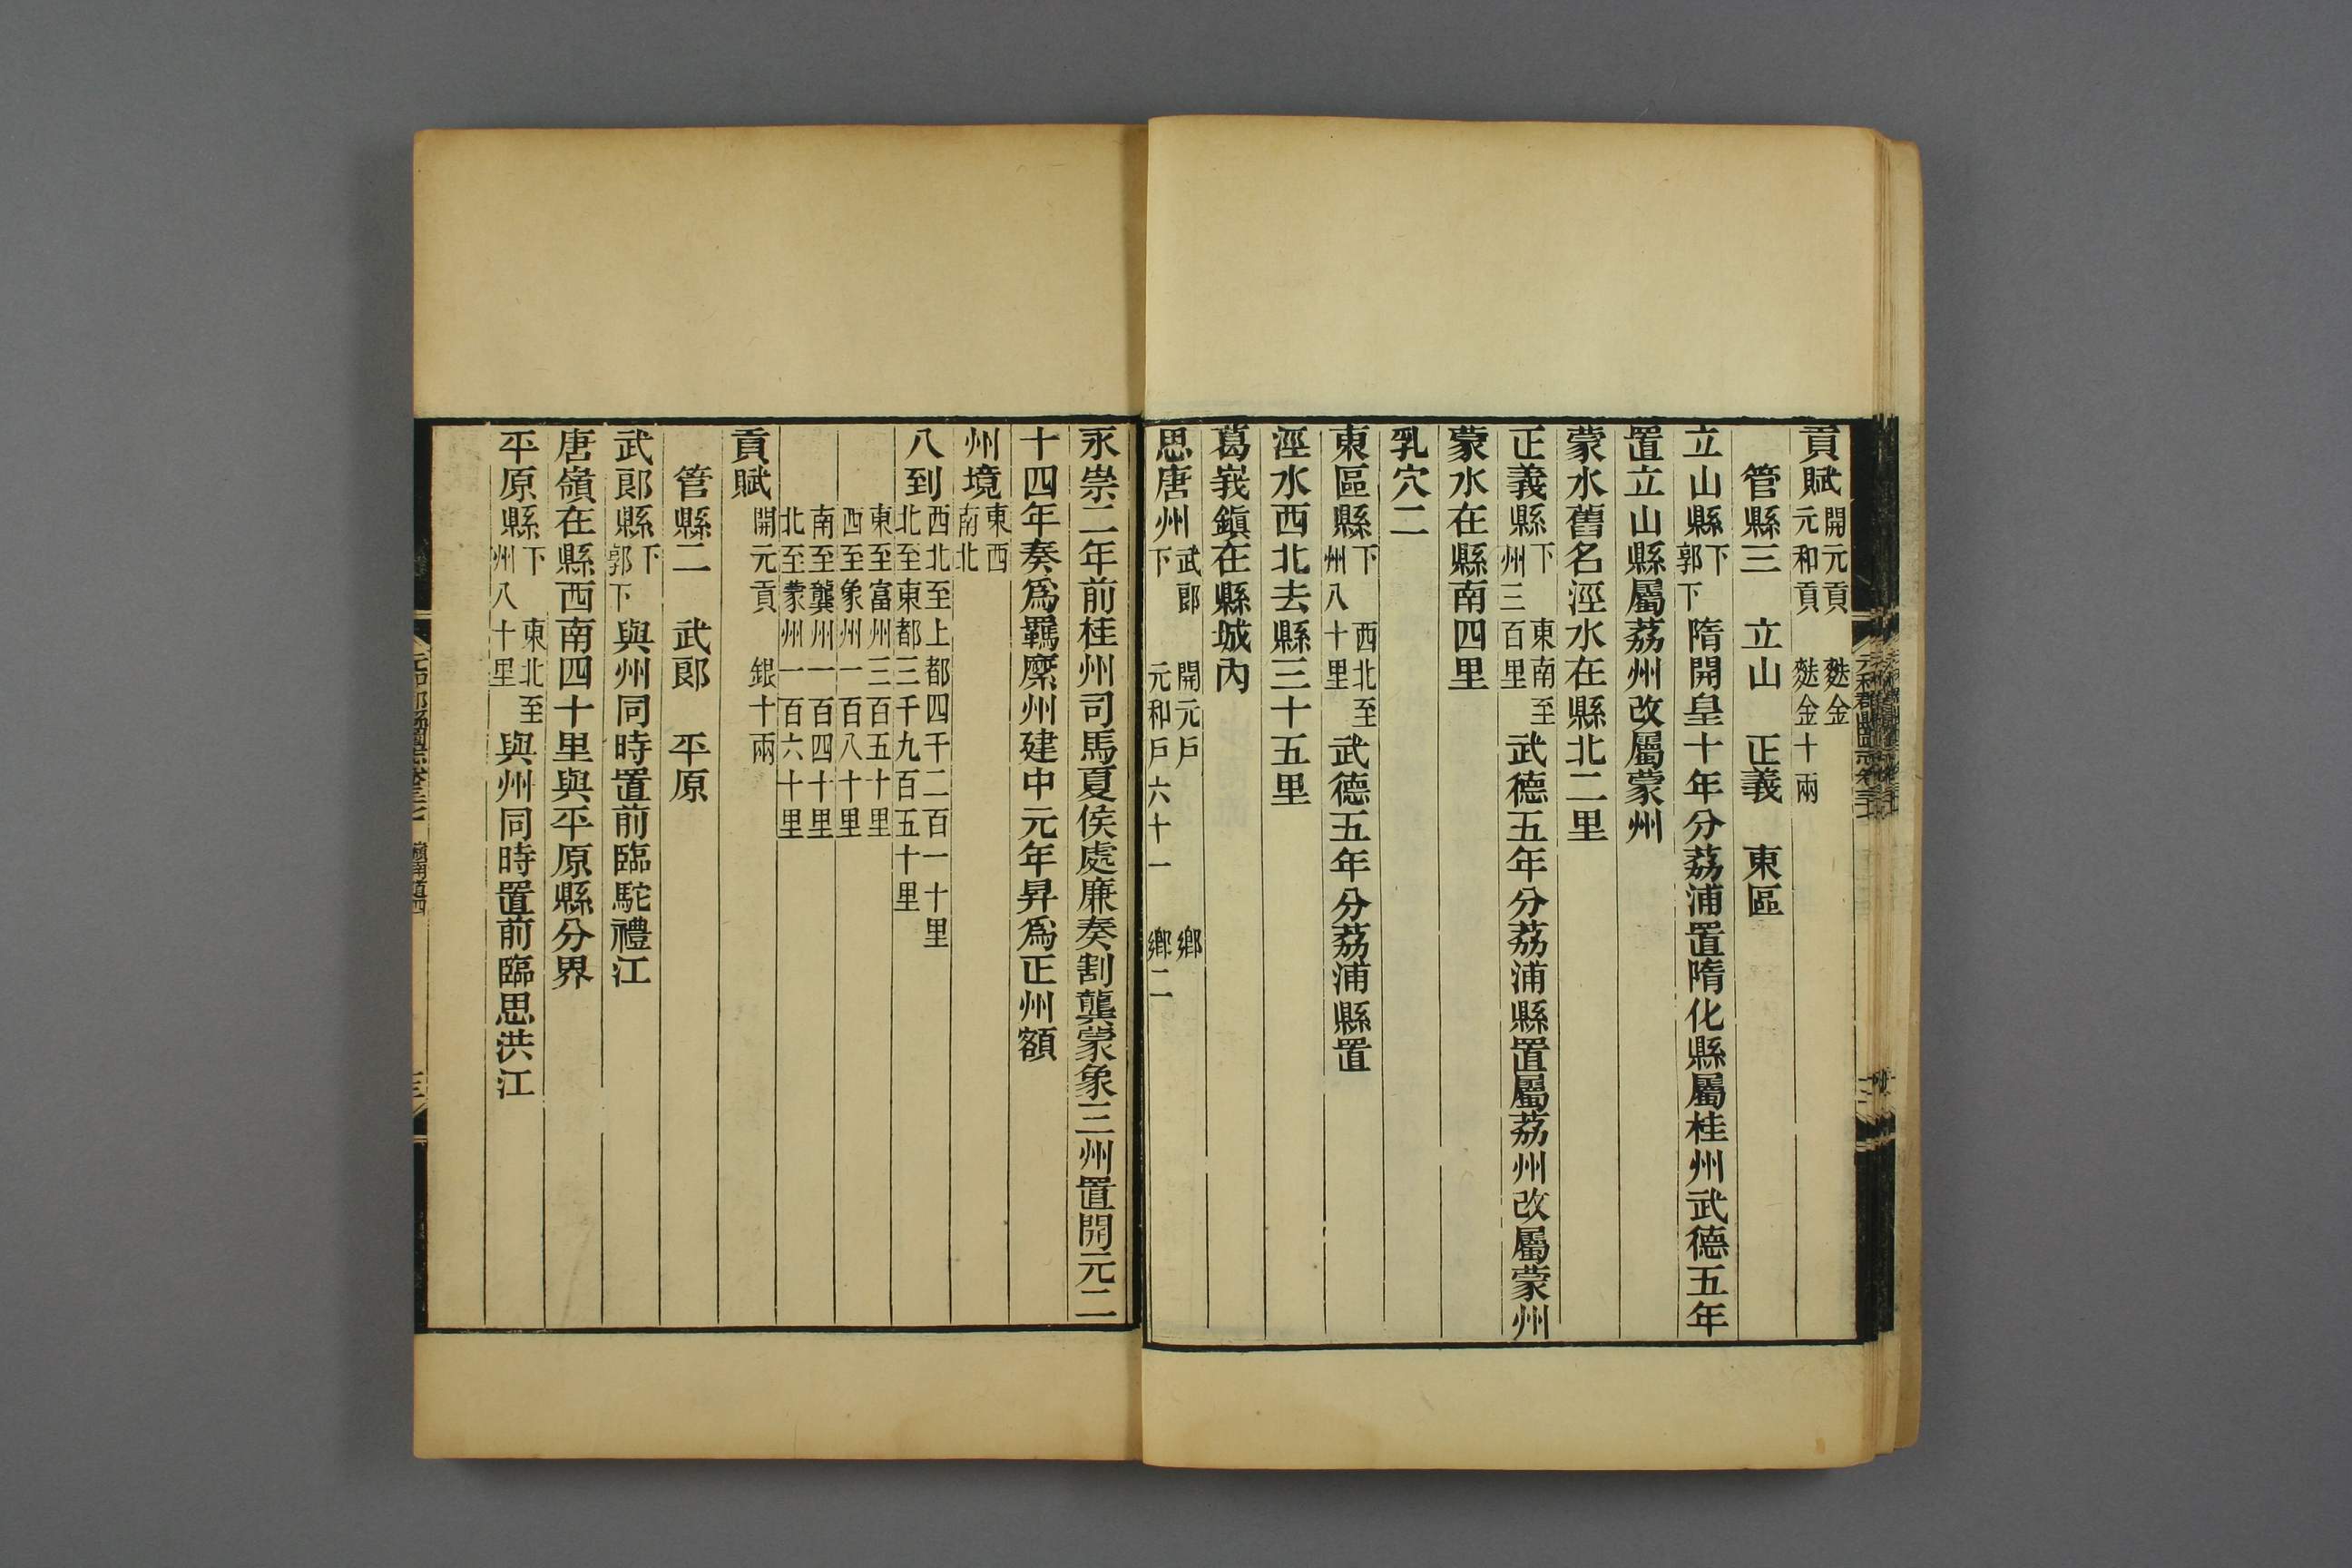 貢賦開元貢 麩金元和貢 麩金十兩
管縣三 立山 正義 東區
立山縣下郭下隋開皇十年分荔浦置隋化縣屬桂州武德五年
置立山縣屬荔州改屬蒙州
蒙水舊名涇水在縣北二里
正義縣下 東南至州三百里武德五年分荔浦縣置屬荔州改屬蒙州
蒙水在縣南四里
乳穴二
東區縣下 西北至州八十里武德五年分荔浦縣置
涇水西北去縣三十五里
葛峩鎭在縣城內
思唐州武郎下 開元戶 鄉元和戶六十一 鄉二
永崇二年前桂州司馬夏侯處廉奏割龔蒙象三州置開元二
十四年奏爲羈縻州建中元年昇爲正州額
州境東西南北
八到西北至上都四千二百一十里北至東都三千九百五十里
東至富州三百五十里西至象州一百八十里
南至龔州一百四十里北至蒙州一百六十里
貢賦開元貢 銀十兩
管縣二 武郎 平原
武郎縣下郭下與州同時置前臨駝禮江
唐嶺在縣西南四十里與平原縣分界
平原縣下 東北至州八十里與州同時置前臨思洪江